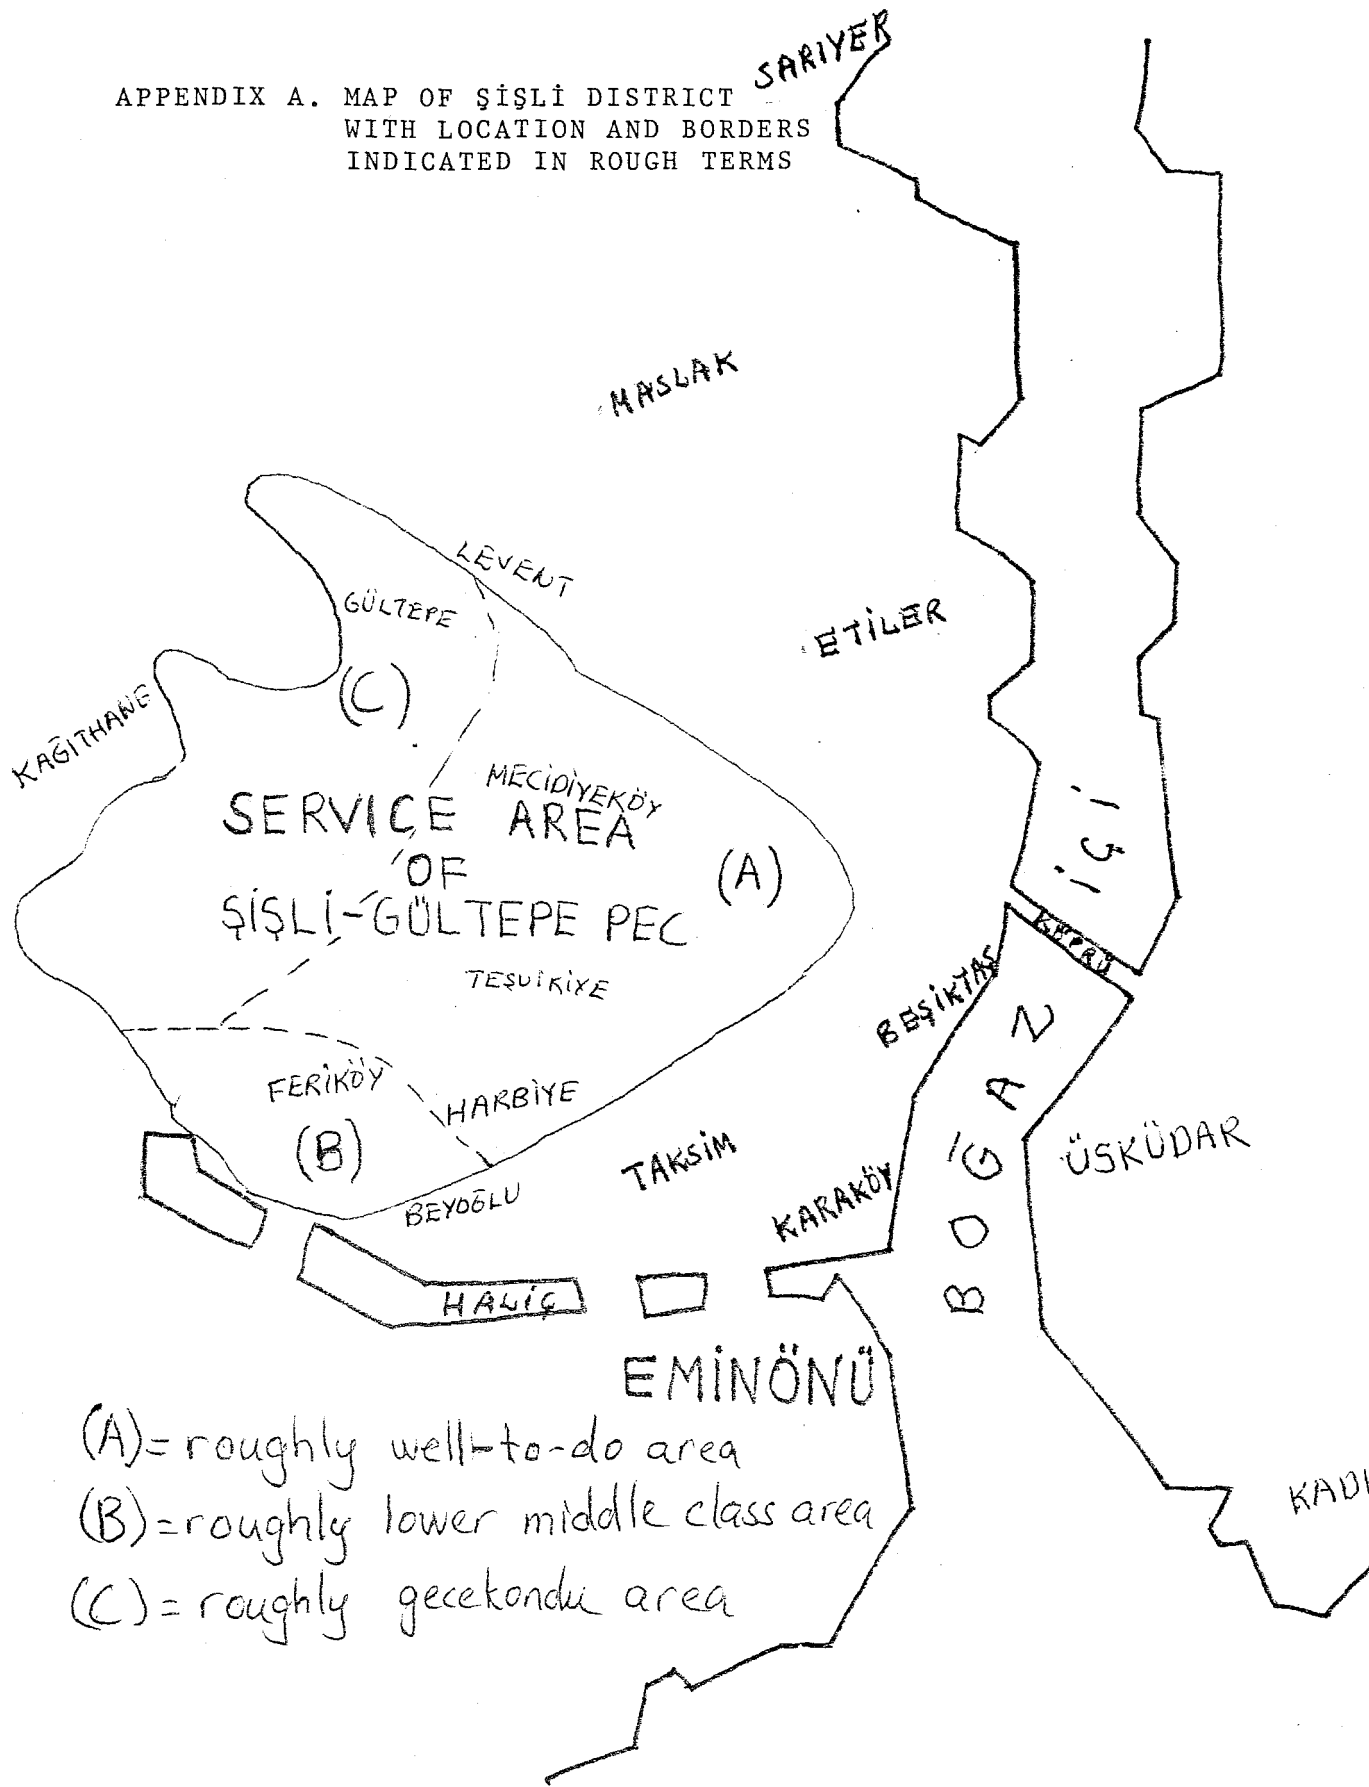 APPENDIX A. MAP OF ŞİŞLİ DISTRICT
WITH LOCATION AND BORDERS
INDICATED IN ROUGH TERMS
SARIYER
MASLAK
LEVENT
GÜLTEPE
ETİLER
(C)
KAĞITHANE
MECİDİYEKÖY
SERVICE AREA
OF
ŞİŞLİ-GÜLTEPE PEC
(A)
İÇİ
KÖPRÜ
TEŞVİKİYE
BEŞİKTAŞ
BOĞAZ
FERİKÖY
HARBİYE
(B)
TAKSİM
ÜSKÜDAR
BEYOĞLU
KARAKÖY
HALİÇ
EMİNÖNÜ
(A)= roughly well-to-do area
(B)= roughly lower middle class area
(C)= roughly gecekondu area
KADI